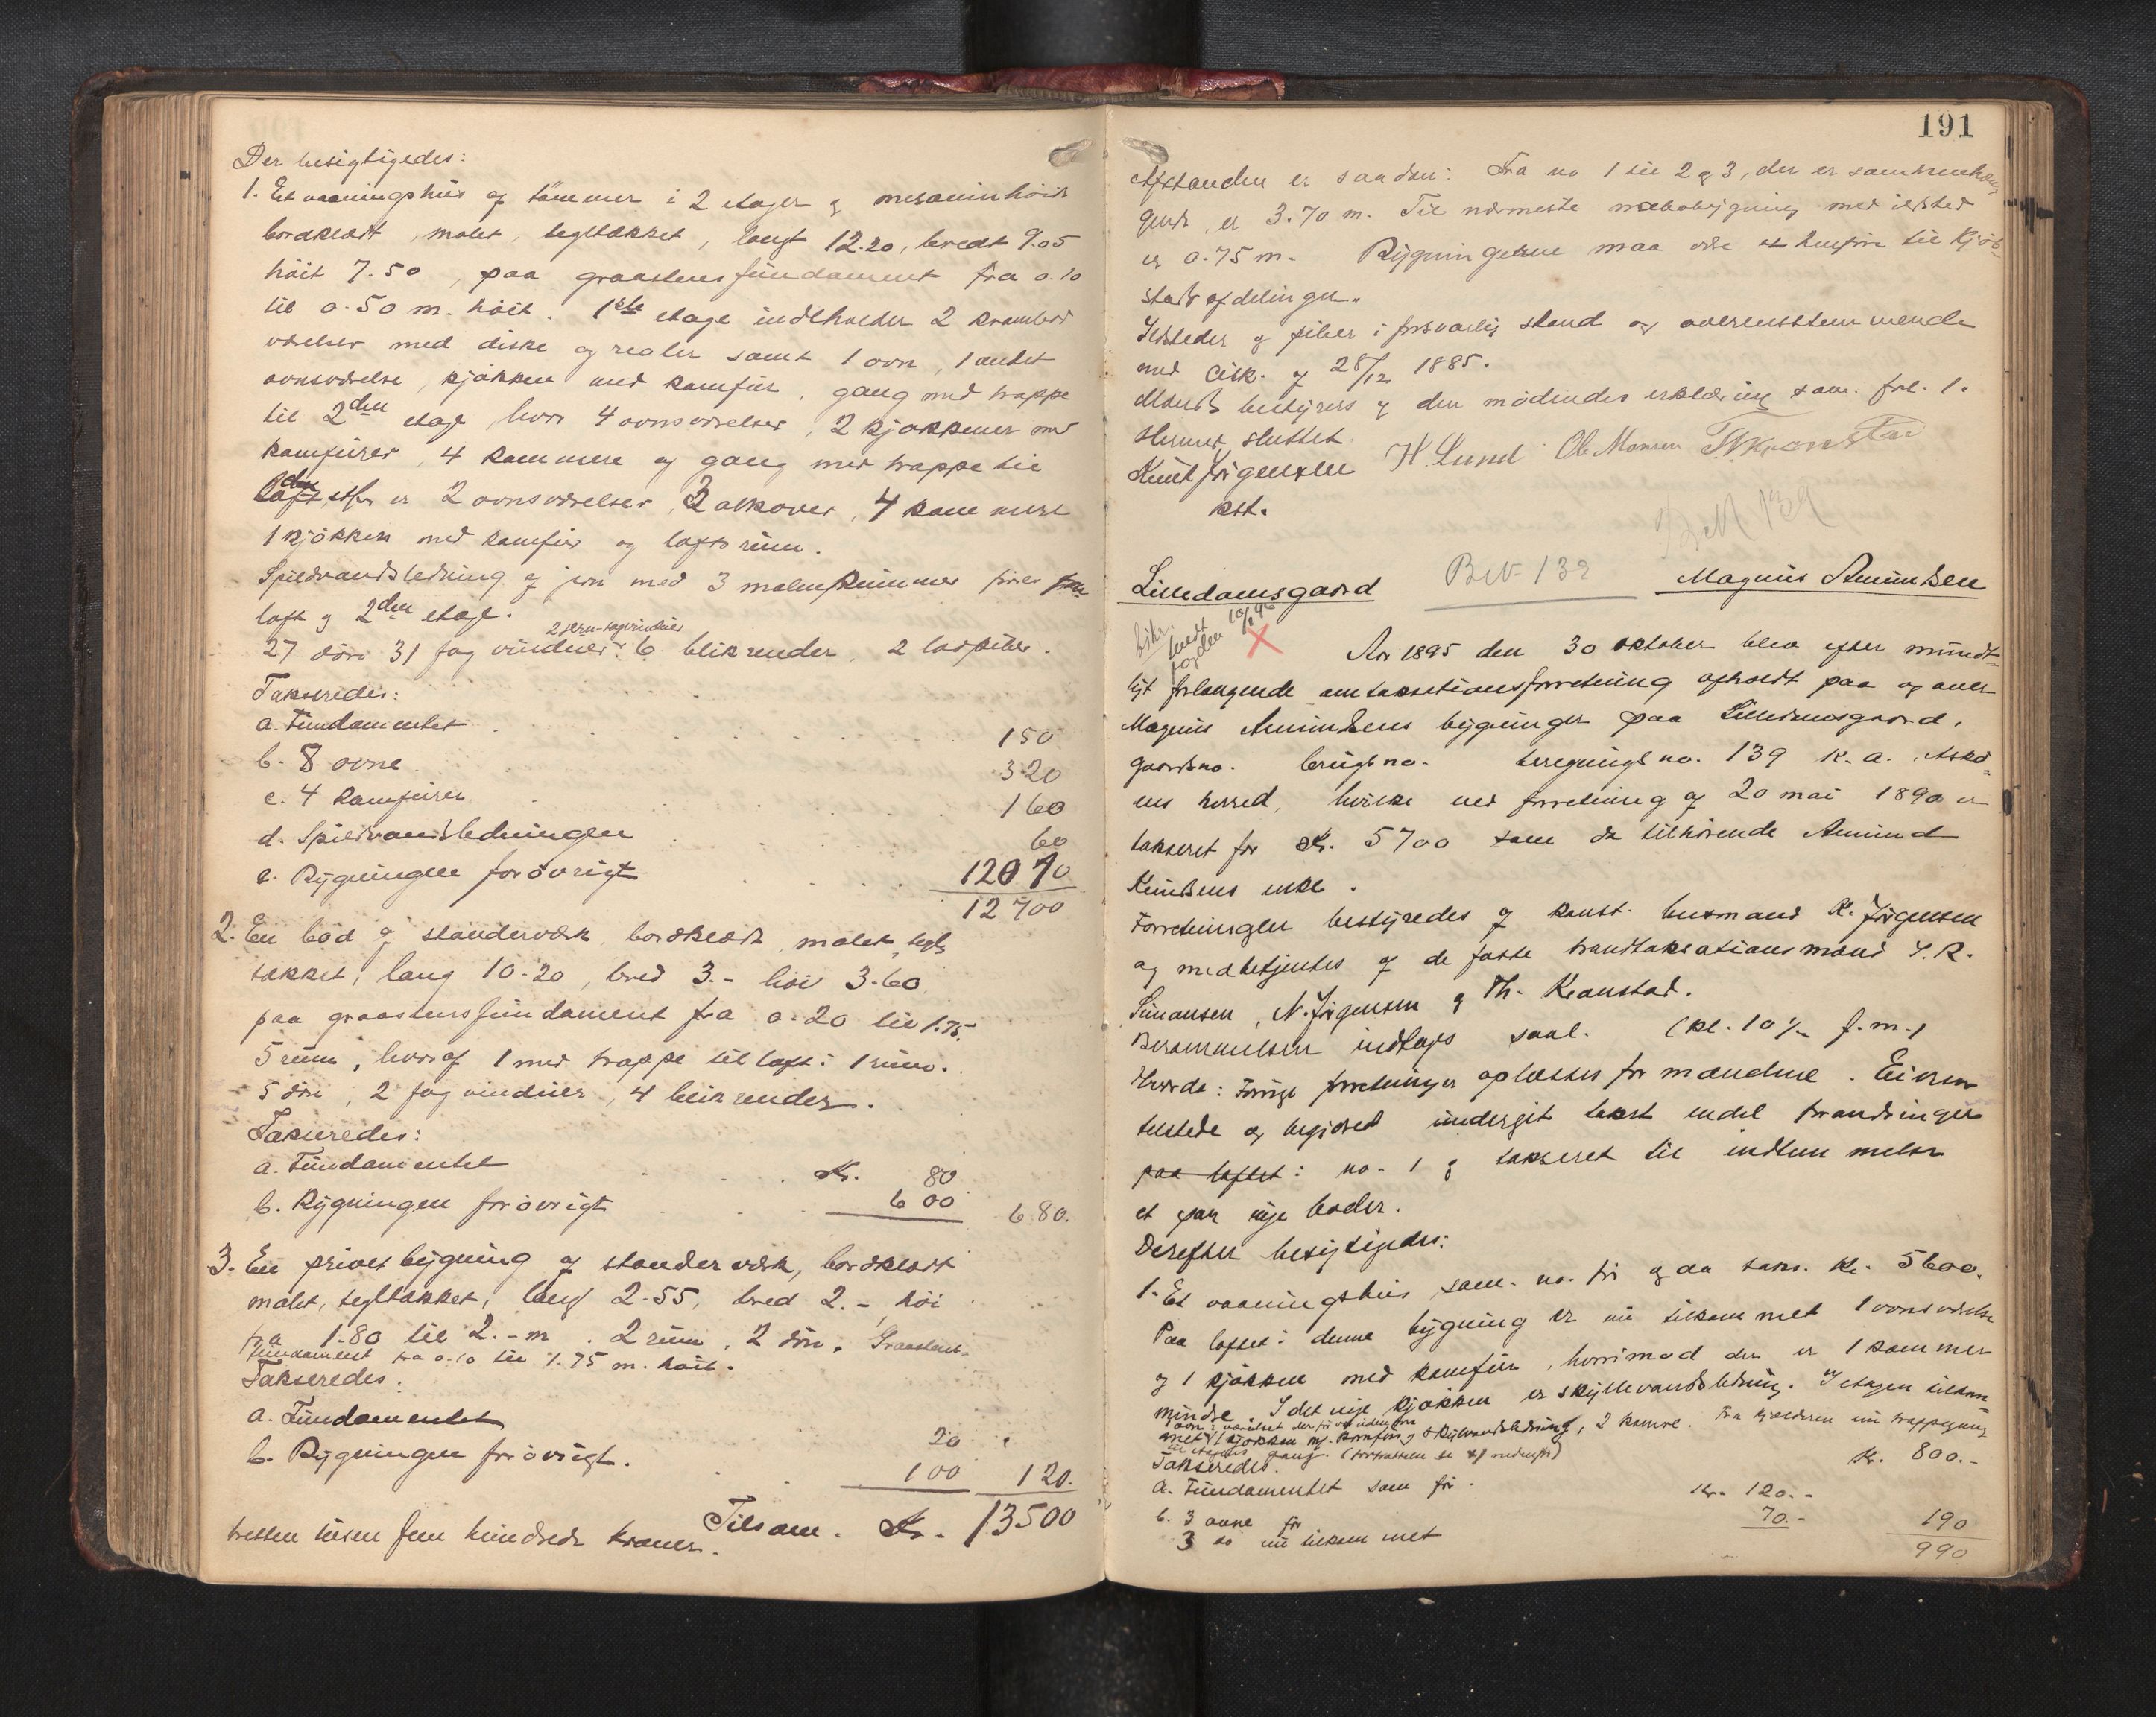 Der besigtigedes:
1. Et vaaningshus af tömmer i 2 etager og mesaninhöide
bordklædt, malet, tegltækket, langt 12.20, bredt 9.05
höit 7.50, paa graastensfundament fra 0.10
til 0.50 m. höit. 1ste etage indeholder 2 krambod
værelser med diske og reoler samt 1 ovn, 1 andet
ovnsværelse, kjökken med komfür, gang med trappe
til 2den etage hvor 4 ovnsværelser, 2 kjökkener med
komfürer, 4 kammere og gang med trappe til
loft er 2 ovnsværelser, 2 alkover, 4 kammere
1 kjökken med komfür og loftsrum.
Spildvandsledning af jern med 3 malmkummer fører fra
loft og 2den etage.
2 jern-tagvinduer
27 döre 31 fag vinduer 6 blikrender, 2 ladpiber.
Takseredes:
a. Fundamentet 150
b. 8 ovne 320
c. 4 komfürer 160
d. Spildvandsledningen 60
e. Bygningen forövrigt 12010
12700
2. En bod af standerværk, bordklædt, malet, tegl-
tækket, lang 10.20, bred 3.- höi 3.60
paa graastensfundament fra 0.20 til 1.75.
5 rum, hvoraf 1 med trappe til loft i 1 rum.
5 döre, 2 fag vinduer, 4 blikrender.
Takseredes:
a. Fundamentet Kr. 80
b. Bygningen forövrigt 600 680.
3. En privetbygning af standerværk, bordklædt
malet, tegltækket, lang 2.55, bred 2.-, höi
fra 1.80 til 2.- m. 2 rum, 2 döre. Graastens-
fundament fra 0.10 til 1.75 m. höit.
Takseredes:
a. Fundamentet 20
b. Bygningen forövrigt. 100 120.
Tilsam. Kr. 13500
tretten tusen fem hundrede kroner.
191
Afstanden er saadan: Fra no 1 til 2 og 3, der er sammenhæn-
gende, er 3.70 m. Til nærmeste nabobygning med ildsted
er 0.75 m. Bygningerne maa være at henføre til Kjöb-
stadsafdelingen.
Ildsteder og piber i forsvarlig stand og overensstemmende
med Cirk. af 28/12 1885.
Mands bestyrers og den mödendes erklæring som fol. 1.
Hermed sluttet.
Knut Jörgensen H. Lund Ob. Monsen Th Kronstad
kst.
Br. N 139
Lilledamsgaard Br. N. 139 Magnus Amundsen
Aar 1895 den 30 oktober blev efter mundt-
ligt forlangende omtakstationsforretning afholdt paa og over
Magnus Amundsens bygninger paa Lilledamsgaard,
gaardsno. brugsno. beregningsno. 139 K. a. Askö-
ens herred, hvilke ved forretning af 20 mai 1890 er
takseret for Kr. 5700 som da tilhörende Amund
Knudsens enke.
Forretningen bestyredes af konst. lensmand K. Jörgensen
og medbetjentes af de faste brandtaksationsmænd S. R.
Simonsen, N. Jörgensen og Th. Kronstad.
Berammelsen indtages saal. (kl. 10 ½ f.m.)
Hvorda: Forrige forretninger oplæstes for mændene. Eieren
tilstede og begjæred undergit takst endel forandringer
paa loftet i no. 1 og takseret til indlemmelse
et par nye boder.
Derefter besigtigedes:
1. Et vaaningshus, sam. no. för og da taks. Kr. 5600.
Paa loftet i denne bygning er nu tilkommet 1 ovnsværelse
og 1 kjökken med komfür, hvorimod der er 1 kammer
mindre. I det nye kjökken er skyllevandsledning. I etagen tilkom-
met 1 kjökken m. komfür og skyllevandsledning, 2 kamre. Fra kjælderen nu trappegang
til etagens gang. (fortsættes se nedenfor)
Takseredes. Kr. 800.-
a. Fundamentet som för Kr. 120.-
b. 3 ovne för 70.- 190
3 do nu tilkommet 990